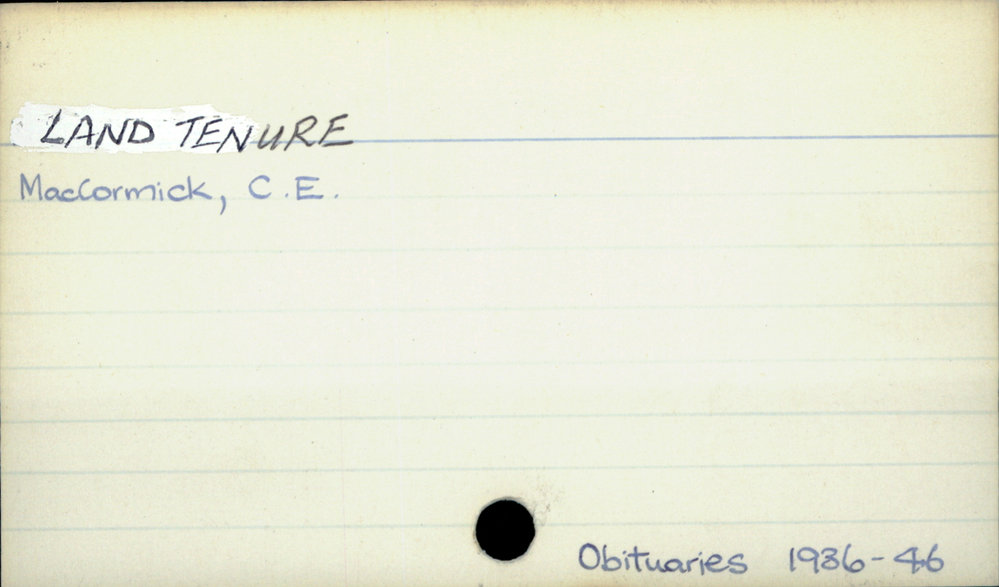 LAND TENURE
MacCormick, C.E.
Obituaries 1936-46